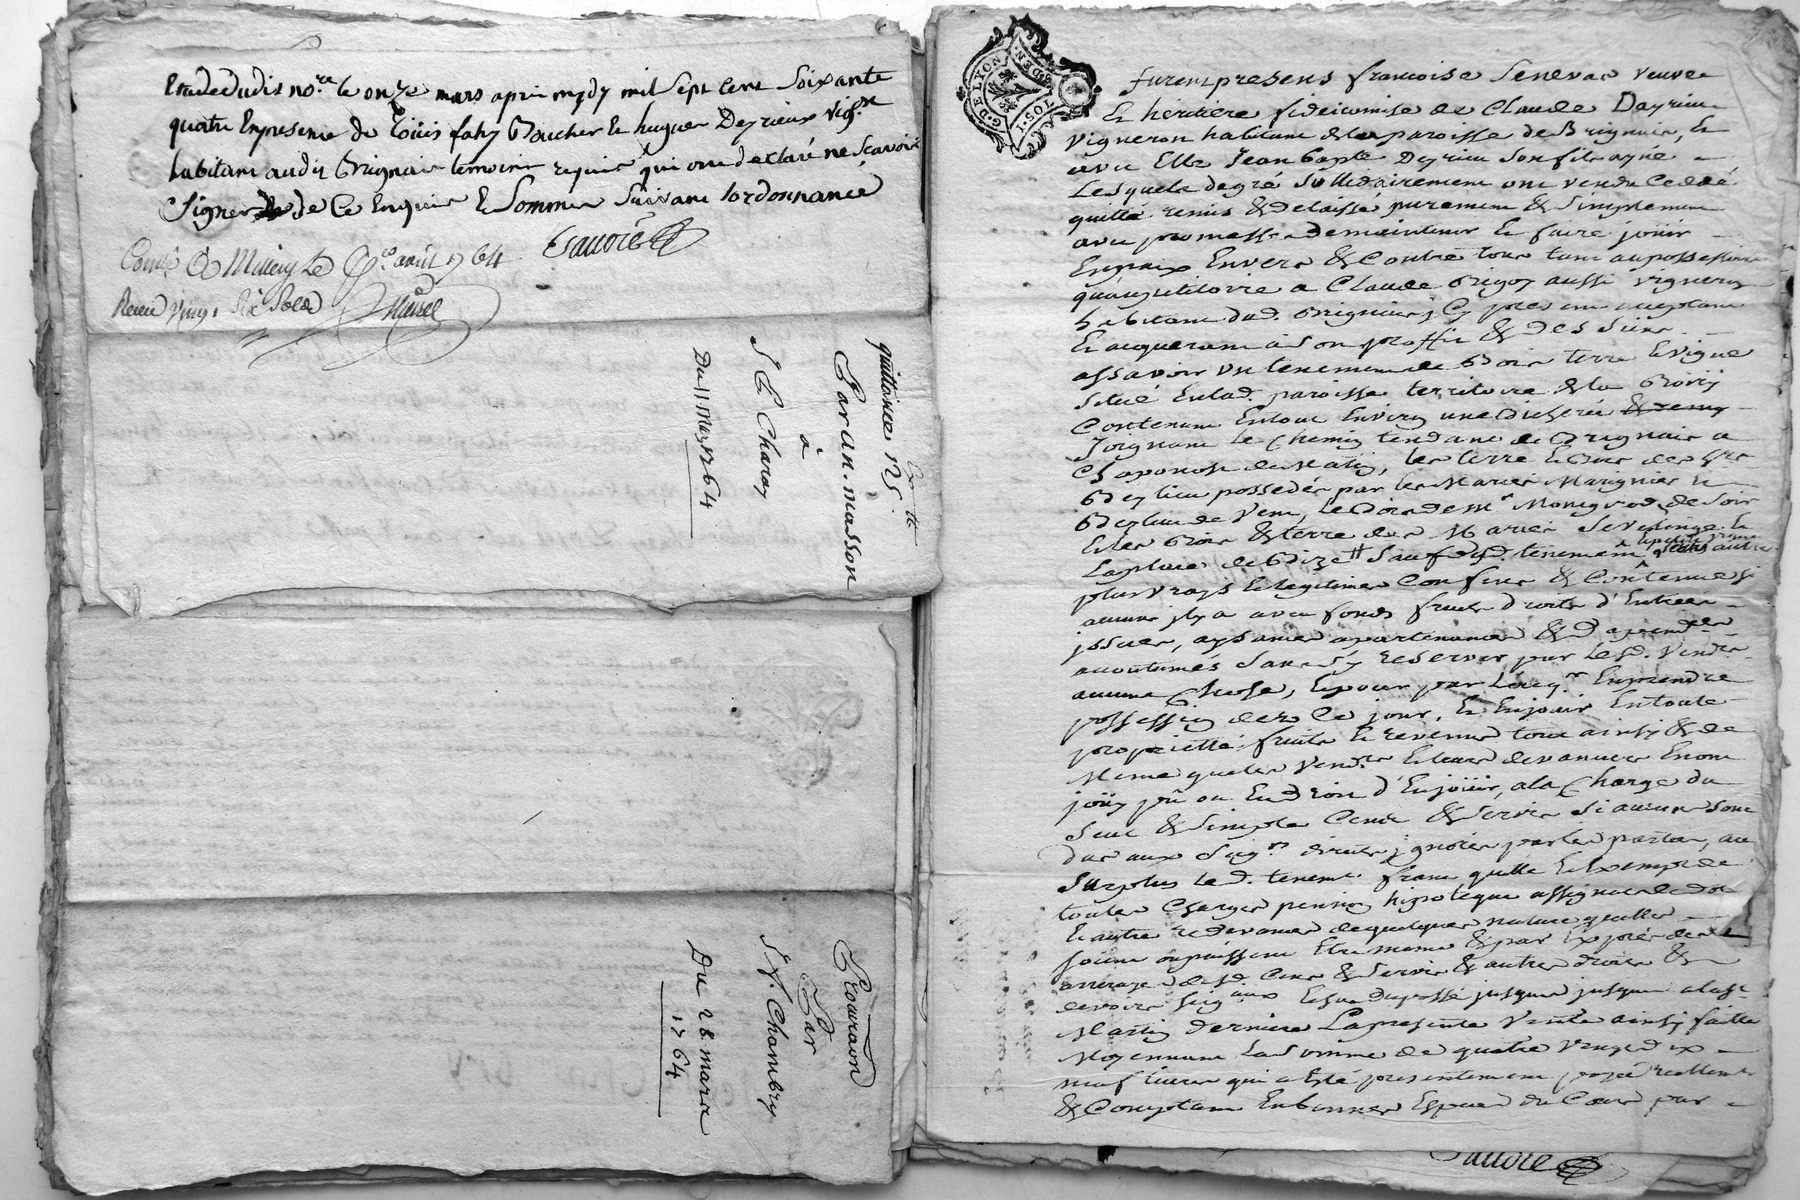 Etude dudit no.re le onze mars apres mydy mil Sept Cent Soixante
quatre En presence de Loüis fahy Boucher Et hugues Deyrieux Vig.on
habitant audit Brignais temoins requis qui ont declaré ne Scavoir
Signer de Ce Enquis Et Sommés Suivant lordonnance
Sauvore
Conté à Millery Le avril 1764
Receu Vingt Six Sols
quittance 125.
Par An. masson
à
S.r Charoy
Du 11 Mars 1764
Procuration
Par
S.r Chambry
Du 28 mars
1764
G. D. E LYON
TOS. 1 DEN.
furent presens francoise Senevas veuve
Et heritiere fideicomise de Claude Dayrieu
vigneron habitant de la paroisse de Brignais, Et
avec Elle Jean bapte Deyrieu Son fils ayné
Lesquels de gré Sollidairement ont vendu Ceddé
quitté remis & delaissé purement & Simplement
avec promesse de maintenir Et faire jouir
En paix Envers & Contre tous tant au possessoire
qu'au petitoire a Claude Brigoy aussi vigneron
habitant dud. Brignais, Cy present acceptant
Et acquerant a Son proffit & des Siens
assavoir un tenement de Bois terre Et vigne
Situé En lad. paroisse territoire de la
Contenant En tout Environ une Bicheréе
Joignant le Chemin tendant de Brignais a
Chaponost de Matin, les terre Et Bois des
possedés par les Maries Marignier
de Vent, Le Bois de Mr de Soir
Et les Bois & terre des Maries
La place de Bize Sauf dud. tenement
plus vrays Et legitimes Confins & Contenue Si
aucuns il y a avec fonds fruits droits d'Entrées
issues, aysances apartenances & dependces
accoutumés Sans S'y reserver par Lesd. Vendrs
aucune Chose, Et pour par L'acqr En prendre
possession dez Ce jour, Et En jouir En toute
proprietté fruits Et revenus tout ainsy & de
Meme que les Vendrs Et leurs devanciers En ont
joüy pû ou Eu droit d'En joüir, a la Charge du
Seul & Simple Cens & Servis Si aucun Sont
dus aux Seigrs directs ignorés par les parties, au
Surplus Led. tenemt franc quitte Et Exempt de
toutes Charges pension hipoteque assignat de dot
Et autre redevances de quelques nature qu'elles
Soient ou puissent Etre meme & par Exprès des
arrerages desd. Cens & Servis & autres droits &
devoirs Seigaux du passé jusques a la St
Martin derniere La presente Vente ainsy faitte
Moyennant La Somme de quatre Vingt dix
neuf livres qui a Eté presentement payé reellemt
& Comptant En bonnes Espece du Cours par
Sauvore